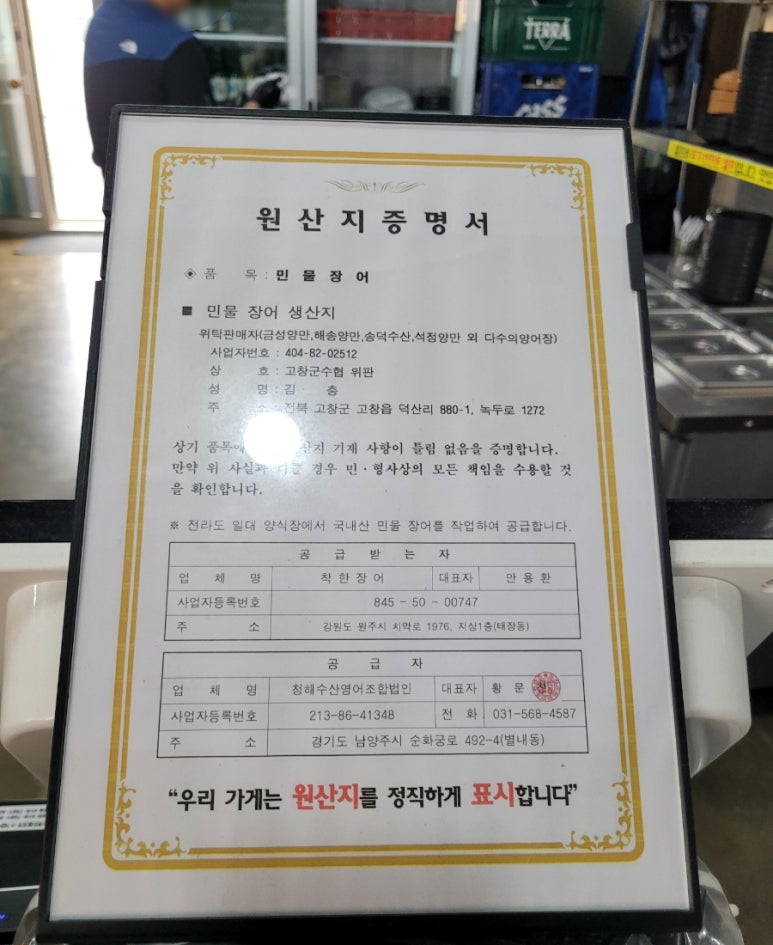 TERRA
CASS
원산지증명서
◈ 품 목 : 민 물 장 어
■ 민물 장어 생산지
위탁판매자(금성양만,해송양만,송덕수산,석정양만 외 다수의양어장)
사업자번호 : 404-82-02512
상 호 : 고창군수협 위판
성 명 : 김 충
주 소 전북 고창군 고창읍 덕산리 880-1, 녹두로 1272
상기 기재 사항이 틀림 없음을 증명합니다.
만약 위 경우 민·형사상의 모든 책임을 수용할 것
을 확인합니다.
※ 전라도 일대 양식장에서 국내산 민물 장어를 작업하여 공급합니다.
공 급 받 는 자
업 체 명 착한장어 대표자 안용환
사업자등록번호 845 - 50 - 00747
주 소 강원도 원주시 치악로 1976, 지상1층(태장동)
공 급 자
업 체 명 청해수산영어조합법인 대표자 황 문
사업자등록번호 213-86-41348 전 화 031-568-4587
주 소 경기도 남양주시 순화궁로 492-4(별내동)
“우리 가게는 원산지를 정직하게 표시합니다”